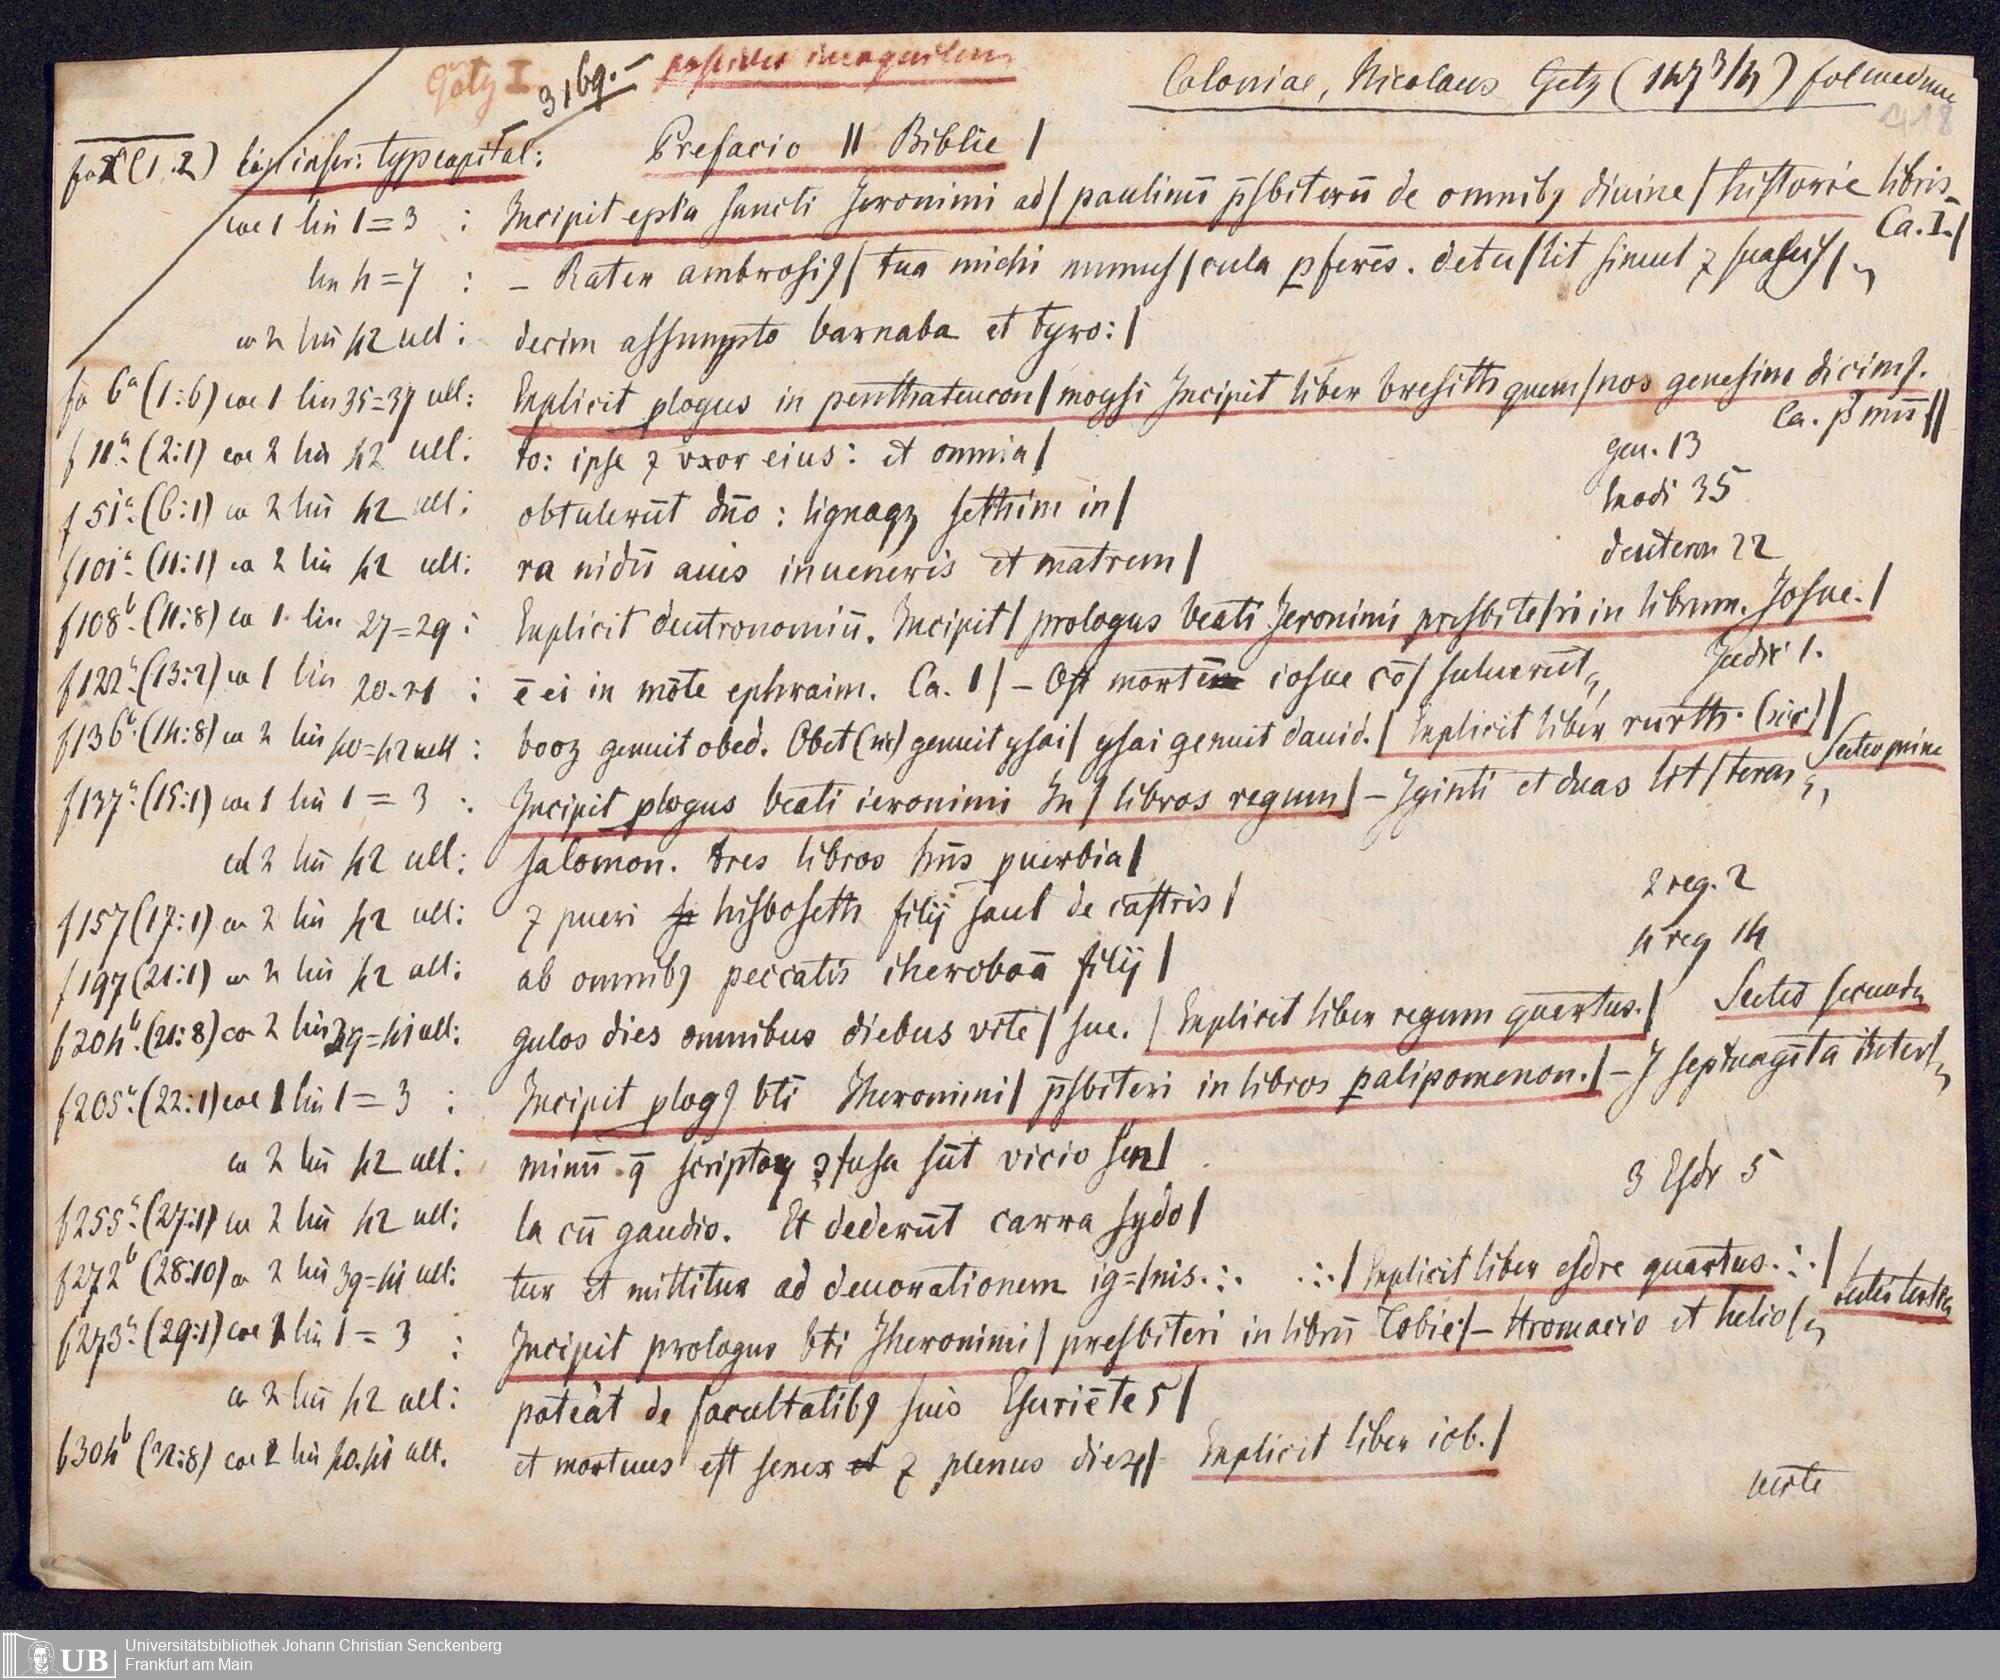 Götz I. 31 bg. –
Coloniae, Nicolaus Getz (147 3/4) fol
418
(1.2) inscr: typ capital: Prefacio || Biblie |
col 1 lin 1=3 : Incipit epl'a sancti Jeronimi ad | paulinū p̄sbiterū de omnibꝫ diuine | historie libris
Ca. I. |
lin 4=7 : – Rater ambrosiꝰ | tua michi munus | cula ꝑferēs. detu | lit simul ⁊ suasuis |
co 2 lin 42 ult: decim assumpto barnaba et tyro: |
fo 6ᵃ (1:6) col 1 lin 35=37 ult: Explicit ꝓlogus in penthateucon | moysi Incipit liber bresith quem | nos genesim dicimꝰ.
Ca. pͥmū ||
f 11ᵃ (2:1) col 2 lin 42 ult: to: ipse ⁊ vxor eius: et omnia | gen. 13
f 51ᵃ (6:1) co 2 lin 42 ult: obtulerūt dn̄o: lignaqꝫ sethim in | Exodi 35
f 101ᵃ (11:1) co 2 lin 42 ult: ra nidū auis inueneris et matrem | deuteron 22
f 108ᵇ (11:8) co 1 lin 27=29 : Explicit deutronomiū. Incipit | prologus beati Jeronimi presbite | ri in librum. Josue. |
f 122ᵃ (13:2) co 1 lin 20.21 : ē ei in mōte ephraim. Ca. I | – Ost mortē iosue cō | suluerūt Judic 1.
f 136ᵇ (14:8) co 2 lin 40=42 ult : booz genuit obed. Obet (sic) genuit ysai | ysai genuit dauid. | Explicit liber rurth. (sic) |
f 137ᵃ (15:1) col 1 lin 1=3 : Incipit ꝓlogus beati ieronimi In | libros regum | – Iginti et duas lit | teras
col 2 lin 42 ult: salomon. tres libros hn̄s puerbia |
f 157 (17:1) co 2 lin 42 ult: ⁊ pueri hisboseth filij saul de castris | 2 reg. 2
f 197 (21:1) co 2 lin 42 ult: ab omnibꝫ peccatis iheroboā filij | 4 reg 14
f 204ᵇ (21:8) co 2 lin 39=41 ult: gulos dies omnibus diebus vite | sue. | Explicit liber regum quartus. | Sectio secunda
f 205ᵃ (22:1) col 1 lin 1=3 : Incipit ꝓlogꝰ bti Iheronimi | p̄sbiteri in libros ꝑalipomenon. | – I septuagīta inter |
co 2 lin 42 ult: minū q̄ scriptoꝝ ꝯfusa sūt vicio sen |
f 255ᵃ (27:1) co 2 lin 42 ult: la cū gaudio. Et dederūt carra sydo | 3 Esdr 5
f 272ᵇ (28:10) co 2 lin 39=41 ult: tur et mittitur ad deuorationem ig= | nis. :. .:. | Explicit liber esdre quartus. :. |
f 273ᵃ (29:1) col 1 lin 1=3 : Incipit prologus bti Iheronimi | presbiteri in librū Tobie | – Hromacio et helio |
co 2 lin 42 ult: poteāt de facultatibꝫ suis Esuriētes |
f 304ᵇ (32:8) col 2 lin 40.41 ult. et mortuus est senex ⁊ plenus dieꝝ | Explicit liber iob. |
verte
UB
Universitätsbibliothek Johann Christian Senckenberg
Frankfurt am Main